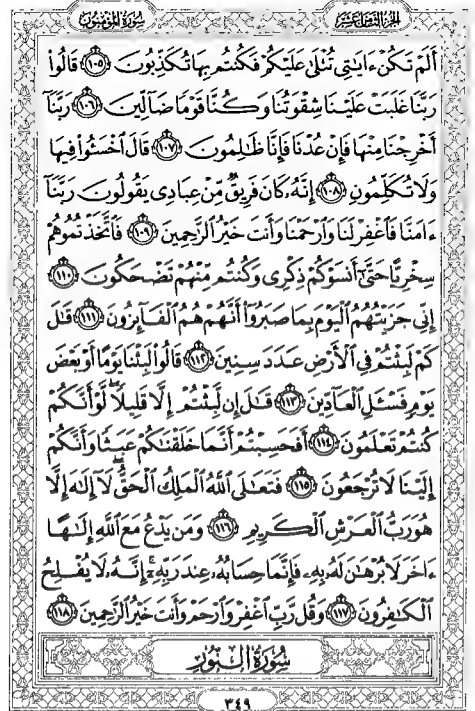 سورة المؤمنون
الجزء الثامن عشر
أَلَمْ تَكُنْ ءَايَٰتِى تُتْلَىٰ عَلَيْكُمْ فَكُنتُم بِهَا تُكَذِّبُونَ ١٠٥ قَالُوا۟
رَبَّنَا غَلَبَتْ عَلَيْنَا شِقْوَتُنَا وَكُنَّا قَوْمًا ضَآلِّينَ ١٠٦ رَبَّنَآ
أَخْرِجْنَا مِنْهَا فَإِنْ عُدْنَا فَإِنَّا ظَٰلِمُونَ ١٠٧ قَالَ ٱخْسَـُٔوا۟ فِيهَا
وَلَا تُكَلِّمُونِ ١٠٨ إِنَّهُۥ كَانَ فَرِيقٌ مِّنْ عِبَادِى يَقُولُونَ رَبَّنَآ
ءَامَنَّا فَٱغْفِرْ لَنَا وَٱرْحَمْنَا وَأَنتَ خَيْرُ ٱلرَّٰحِمِينَ ١٠٩ فَٱتَّخَذْتُمُوهُمْ
سِخْرِيًّا حَتَّىٰٓ أَنسَوْكُمْ ذِكْرِى وَكُنتُم مِّنْهُمْ تَضْحَكُونَ ١١٠
إِنِّى جَزَيْتُهُمُ ٱلْيَوْمَ بِمَا صَبَرُوٓا۟ أَنَّهُمْ هُمُ ٱلْفَآئِزُونَ ١١١ قَٰلَ
كَمْ لَبِثْتُمْ فِى ٱلْأَرْضِ عَدَدَ سِنِينَ ١١٢ قَالُوا۟ لَبِثْنَا يَوْمًا أَوْ بَعْضَ
يَوْمٍ فَسْـَٔلِ ٱلْعَآدِّينَ ١١٣ قَٰلَ إِن لَّبِثْتُمْ إِلَّا قَلِيلًا ۖ لَّوْ أَنَّكُمْ
كُنتُمْ تَعْلَمُونَ ١١٤ أَفَحَسِبْتُمْ أَنَّمَا خَلَقْنَٰكُمْ عَبَثًا وَأَنَّكُمْ
إِلَيْنَا لَا تُرْجَعُونَ ١١٥ فَتَعَٰلَى ٱللَّهُ ٱلْمَلِكُ ٱلْحَقُّ ۖ لَآ إِلَٰهَ إِلَّا
هُوَ رَبُّ ٱلْعَرْشِ ٱلْكَرِيمِ ١١٦ وَمَن يَدْعُ مَعَ ٱللَّهِ إِلَٰهًا
ءَاخَرَ لَا بُرْهَٰنَ لَهُۥ بِهِۦ فَإِنَّمَا حِسَابُهُۥ عِندَ رَبِّهِۦٓ ۚ إِنَّهُۥ لَا يُفْلِحُ
ٱلْكَٰفِرُونَ ١١٧ وَقُل رَّبِّ ٱغْفِرْ وَٱرْحَمْ وَأَنتَ خَيْرُ ٱلرَّٰحِمِينَ ١١٨
سُورَةُ النُّورِ
٣٤٩